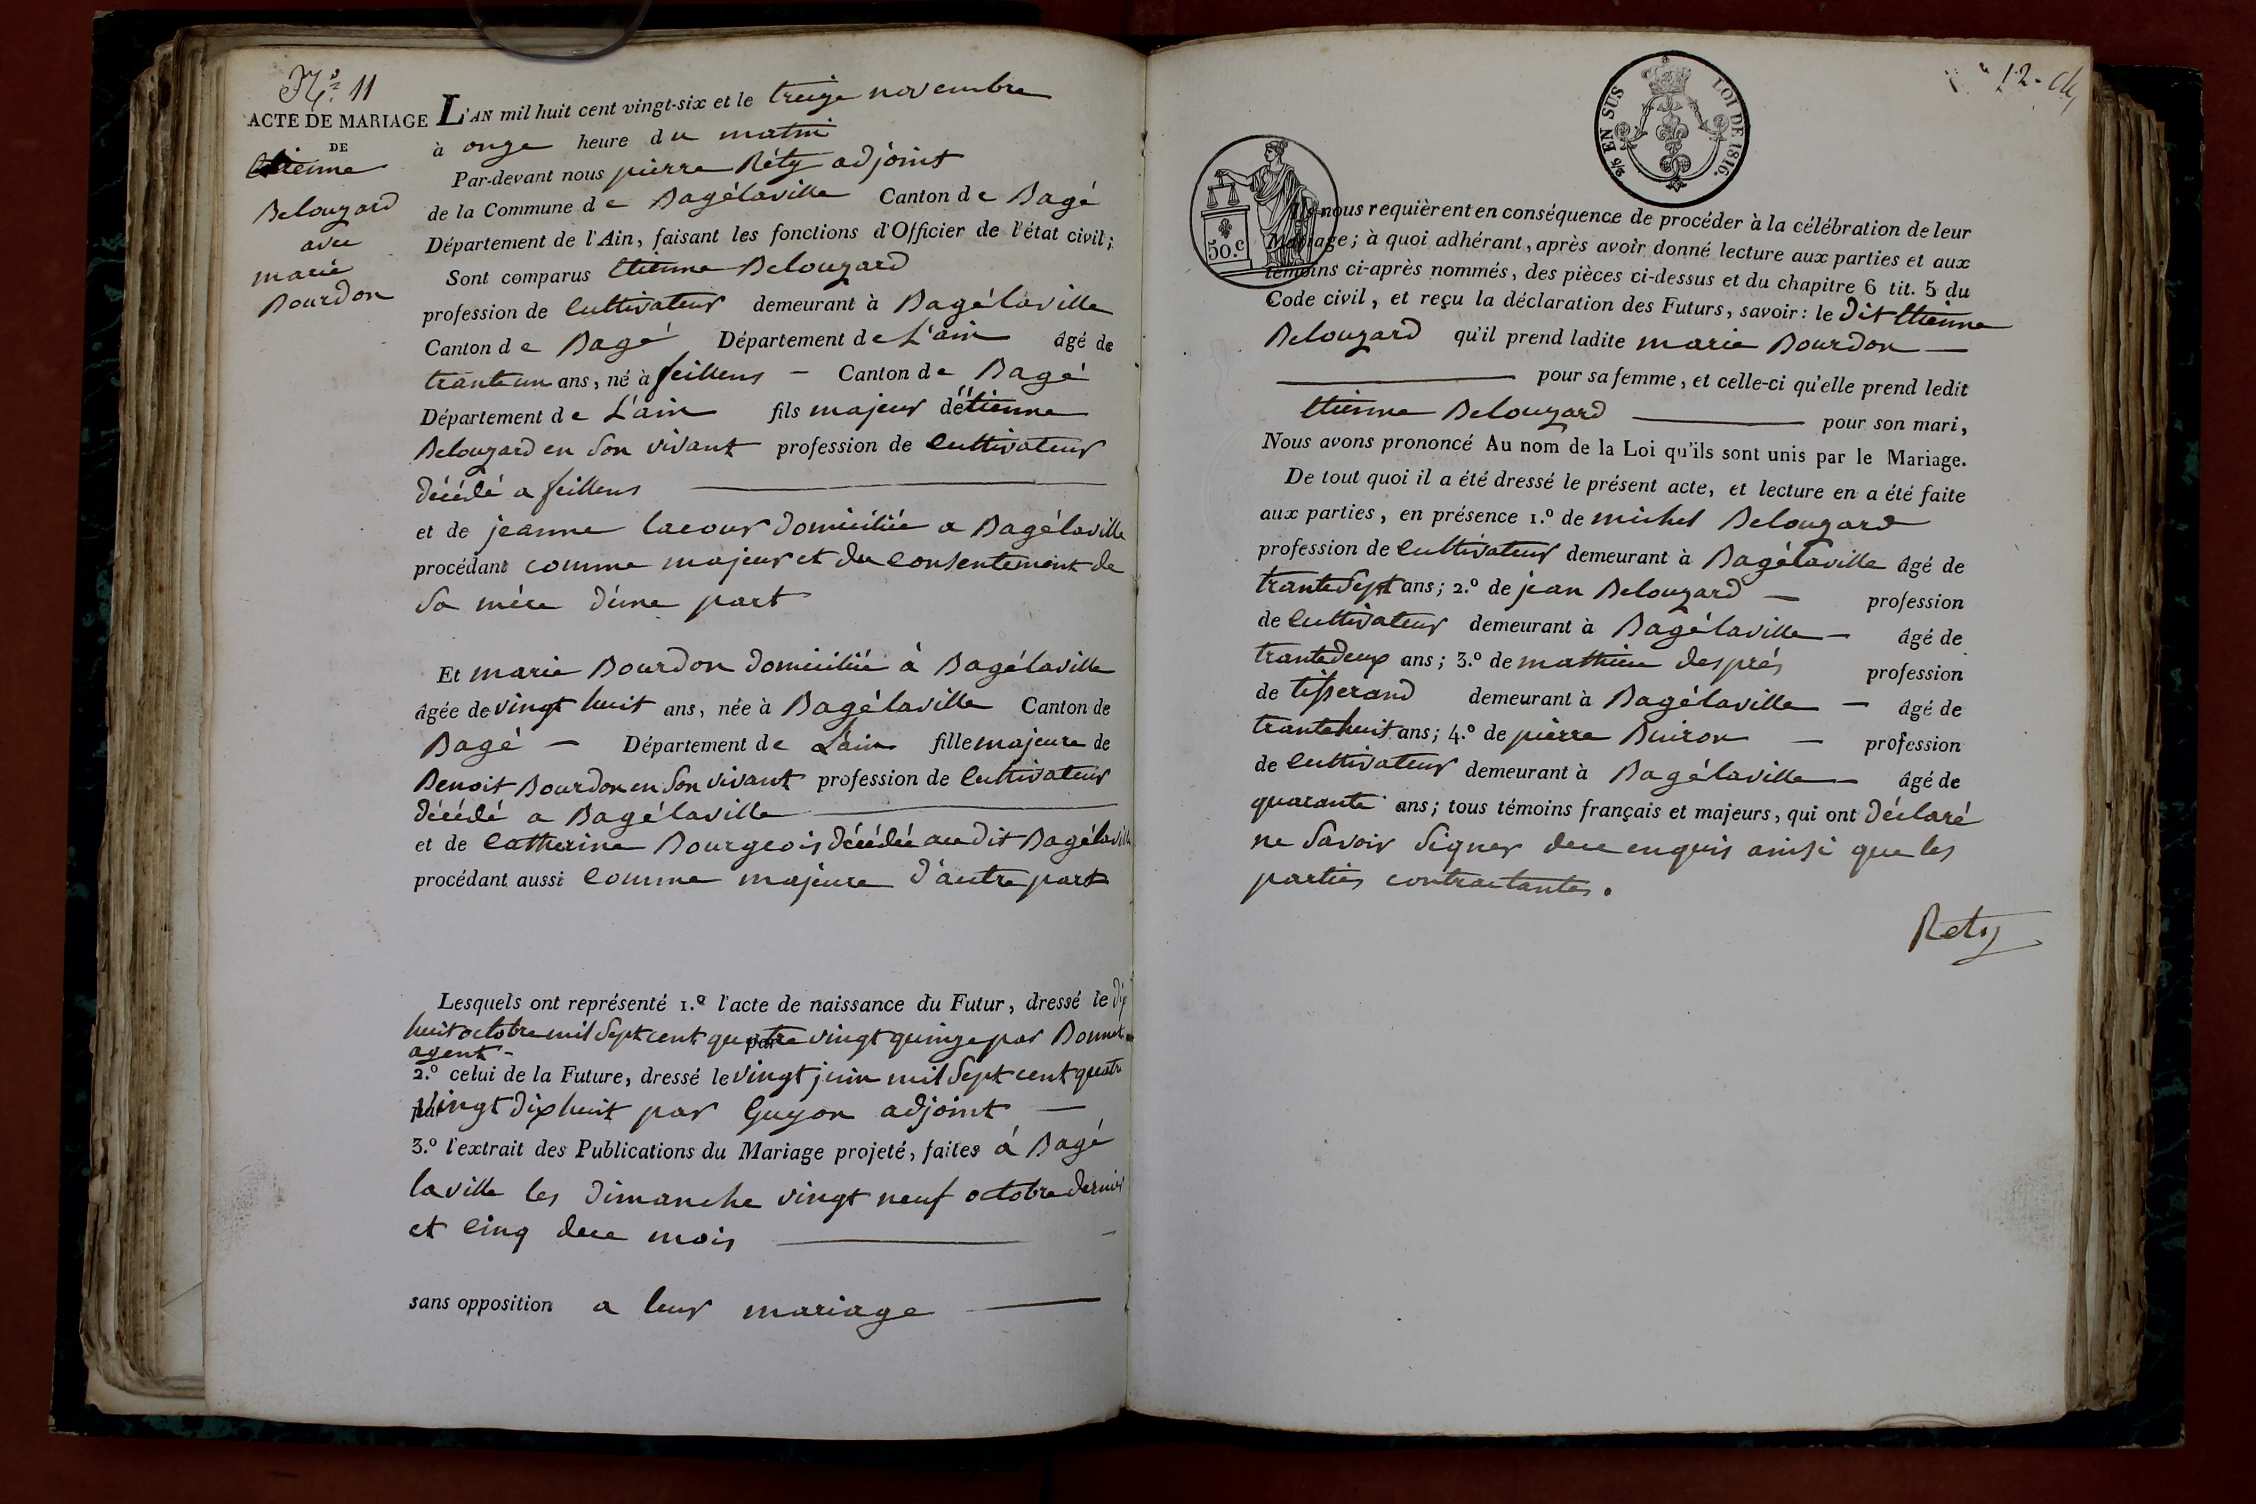 N.° 11
ACTE DE MARIAGE
DE
Etienne
Belouzard
avec
marie
Bourdon
L'AN mil huit cent vingt-six et le treize novembre
à onze heure du matin
Par-devant nous pierre Réty adjoint
de la Commune de Bagélaville Canton de Bagé
Département de l'Ain, faisant les fonctions d'Officier de l'état civil;
Sont comparus Etienne Belouzard
profession de Cultivateur demeurant à Bagélaville
Canton de Bagé Département de L'ain âgé de
trante un ans, né à feillens - Canton de Bagé
Département de L'ain fils majeur d'étienne
Belouzard en Son vivant profession de Cultivateur
décédé a feillens
et de jeanne lacour domiciliée a Bagélaville
procédant comme majeur et du Consentement de
Sa mère d'une part
Et marie Bourdon domiciliée à Bagélaville
âgée de vingt huit ans, née à Bagélaville Canton de
Bagé - Département de L'ain fille majeure de
Benoit Bourdon en Son vivant profession de Cultivateur
décédé a Bagélaville
et de Catherine Bourgeois décédée au dit Bagélaville
procédant aussi Comme majeure d'autre part
Lesquels ont représenté 1.º l'acte de naissance du Futur, dressé le dix
huit octobre mil Sept cent quatre vingt quinze par Bonnet
agent -
2.º celui de la Future, dressé le vingt juin mil Sept cent quatre
Vingt dix huit par Guyon adjoint -
3.º l'extrait des Publications du Mariage projeté, faites à Bagé
laville les dimanche vingt neuf octobre dernier
et Cinq duce mois
sans opposition a leur mariage
2/5 EN SUS LOI DE 1816.
50.c
Ils nous requièrent en conséquence de procéder à la célébration de leur
Mariage; à quoi adhérant, après avoir donné lecture aux parties et aux
témoins ci-après nommés, des pièces ci-dessus et du chapitre 6 tit. 5 du
Code civil, et reçu la déclaration des Futurs, savoir: le dit Etienne
Belouzard qu'il prend ladite marie Bourdon -
pour sa femme, et celle-ci qu'elle prend ledit
Etienne Belouzard pour son mari,
Nous avons prononcé Au nom de la Loi qu'ils sont unis par le Mariage.
De tout quoi il a été dressé le présent acte, et lecture en a été faite
aux parties, en présence 1.º de michel Belouzard
profession de Cultivateur demeurant à Bagélaville âgé de
trante Sept ans; 2.º de jean Belouzard - profession
de Cultivateur demeurant à Bagélaville - âgé de
trante deux ans; 3.º de mathieu després profession
de tisserand demeurant à Bagélaville - âgé de
trante huit ans; 4.º de pierre Buiron - profession
de Cultivateur demeurant à Bagélaville - âgé de
quarante ans; tous témoins français et majeurs, qui ont déclaré
ne Savoir Signer duce enquis ainsi que les
parties contractantes.
Rety